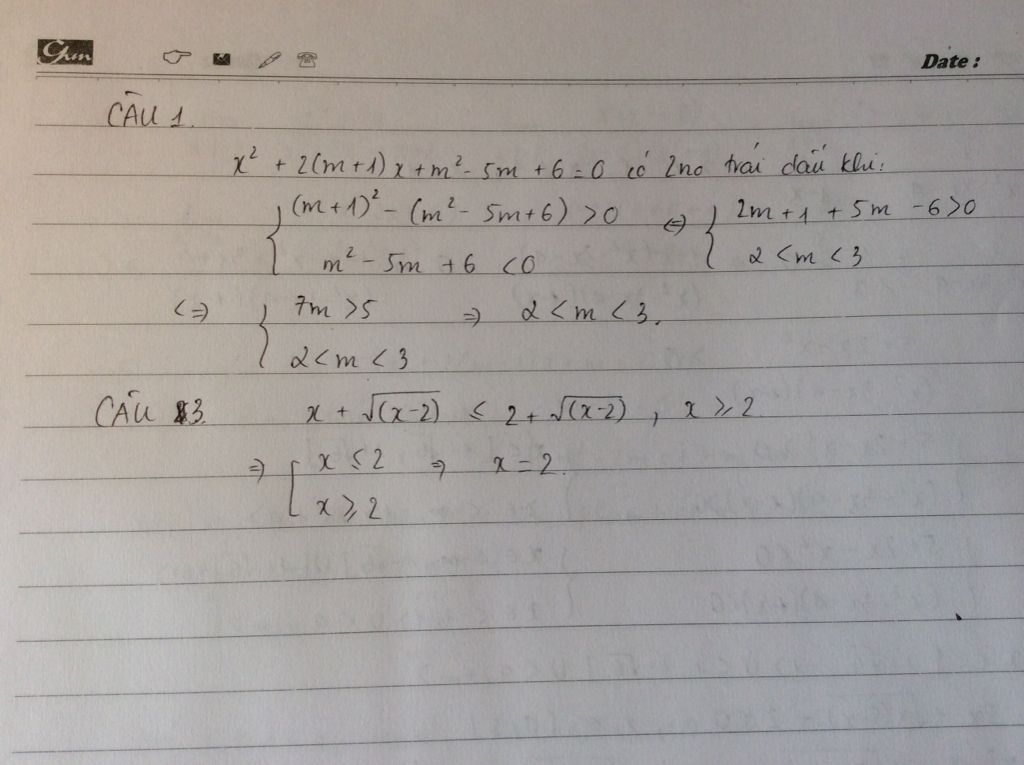 Chm
Date :
CÂU 1.
x² + 2(m+1)x + m² - 5m + 6 = 0 có 2no trái dấu khi:
{ (m+1)² - (m² - 5m+6) > 0 <=> { 2m + 1 + 5m - 6 > 0
m² - 5m + 6 < 0 2 < m < 3
<=> { 7m > 5 => 2 < m < 3.
2 < m < 3
CÂU 3. x + √(x-2) ≤ 2 + √(x-2) , x ≥ 2
=> [ x ≤ 2 => x = 2.
x ≥ 2